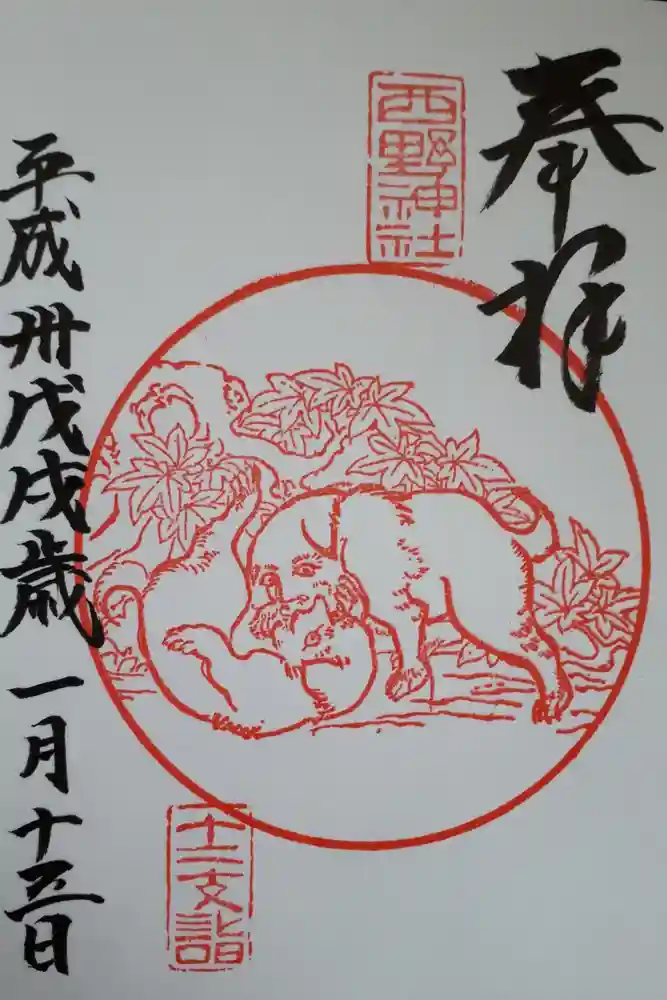 奉拝
西野神社
十二支詣
平成卅戊戌歳一月十五日